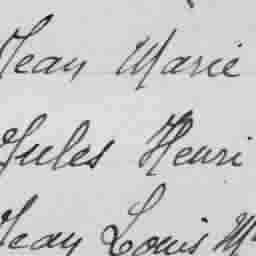 Jean Marie
Jules Henri
Jean Louis M